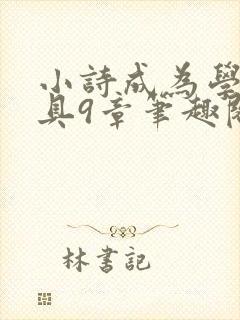 小詩成為學
具9章筆趣閱
林書記